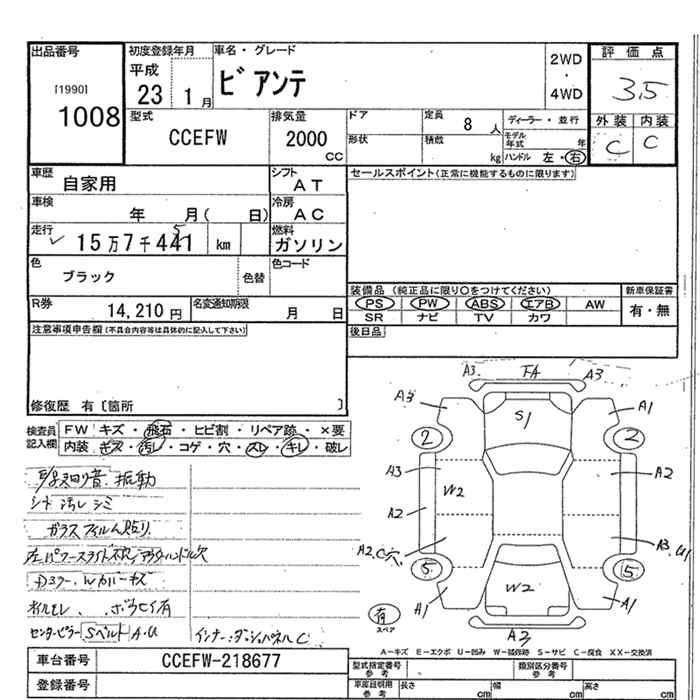 出品番号 初度登録年月 車名・グレード 評価点
[1990] 平成 ビアンテ 2WD ・ 4WD 3.5
1008 23 1月 外装 内装
型式 排気量 ドア 定員 8人 ディーラー・並行 C C
CCEFW 2000 CC 形状 積載 kg モデル年式 年
ハンドル 左・右
車歴 自家用 シフト AT セールスポイント(正常に機能するものに限ります)
車検 年 月( 日) 冷房 AC
走行 15万7千441 5 km 燃料 ガソリン
色 ブラック 色替 色コード
装備品 (純正品に限り○をつけてください) 新車保証書
R券 14,210円 名変通知期限 月 日 PS PW ABS エアB AW 有・無
SR ナビ TV カワ
注意事項申告欄(不具合内容等は具体的に記入して下さい) 後日品
修復歴 有〔箇所 〕
検査員記入欄 FW キズ・飛石・ヒビ割・リペア跡・×要
内装 キズ・汚レ・コゲ・穴・スレ・キレ・破レ
振動
シート汚レ シミ
ガラスフィルム貼り
ハンドル穴
Wカバーキズ
オイルモレ
センターピラー Sベルト A・U
インナー・ダッシュパネル C
A3 FA A3
A3 S1 A1
2 2
A3 W2 A2
A2
A2,C穴 A3
5 5
A1 W2 A1
有 スペア A3
A-キズ E-エクボ U-凹み W-補修跡 S-サビ C-腐食 XX-交換済
車台番号 CCEFW-218677 型式指定番号 参考 類別区分番号 参考
登録番号 車庫証明用 参考 長さ cm 幅 cm 高さ cm